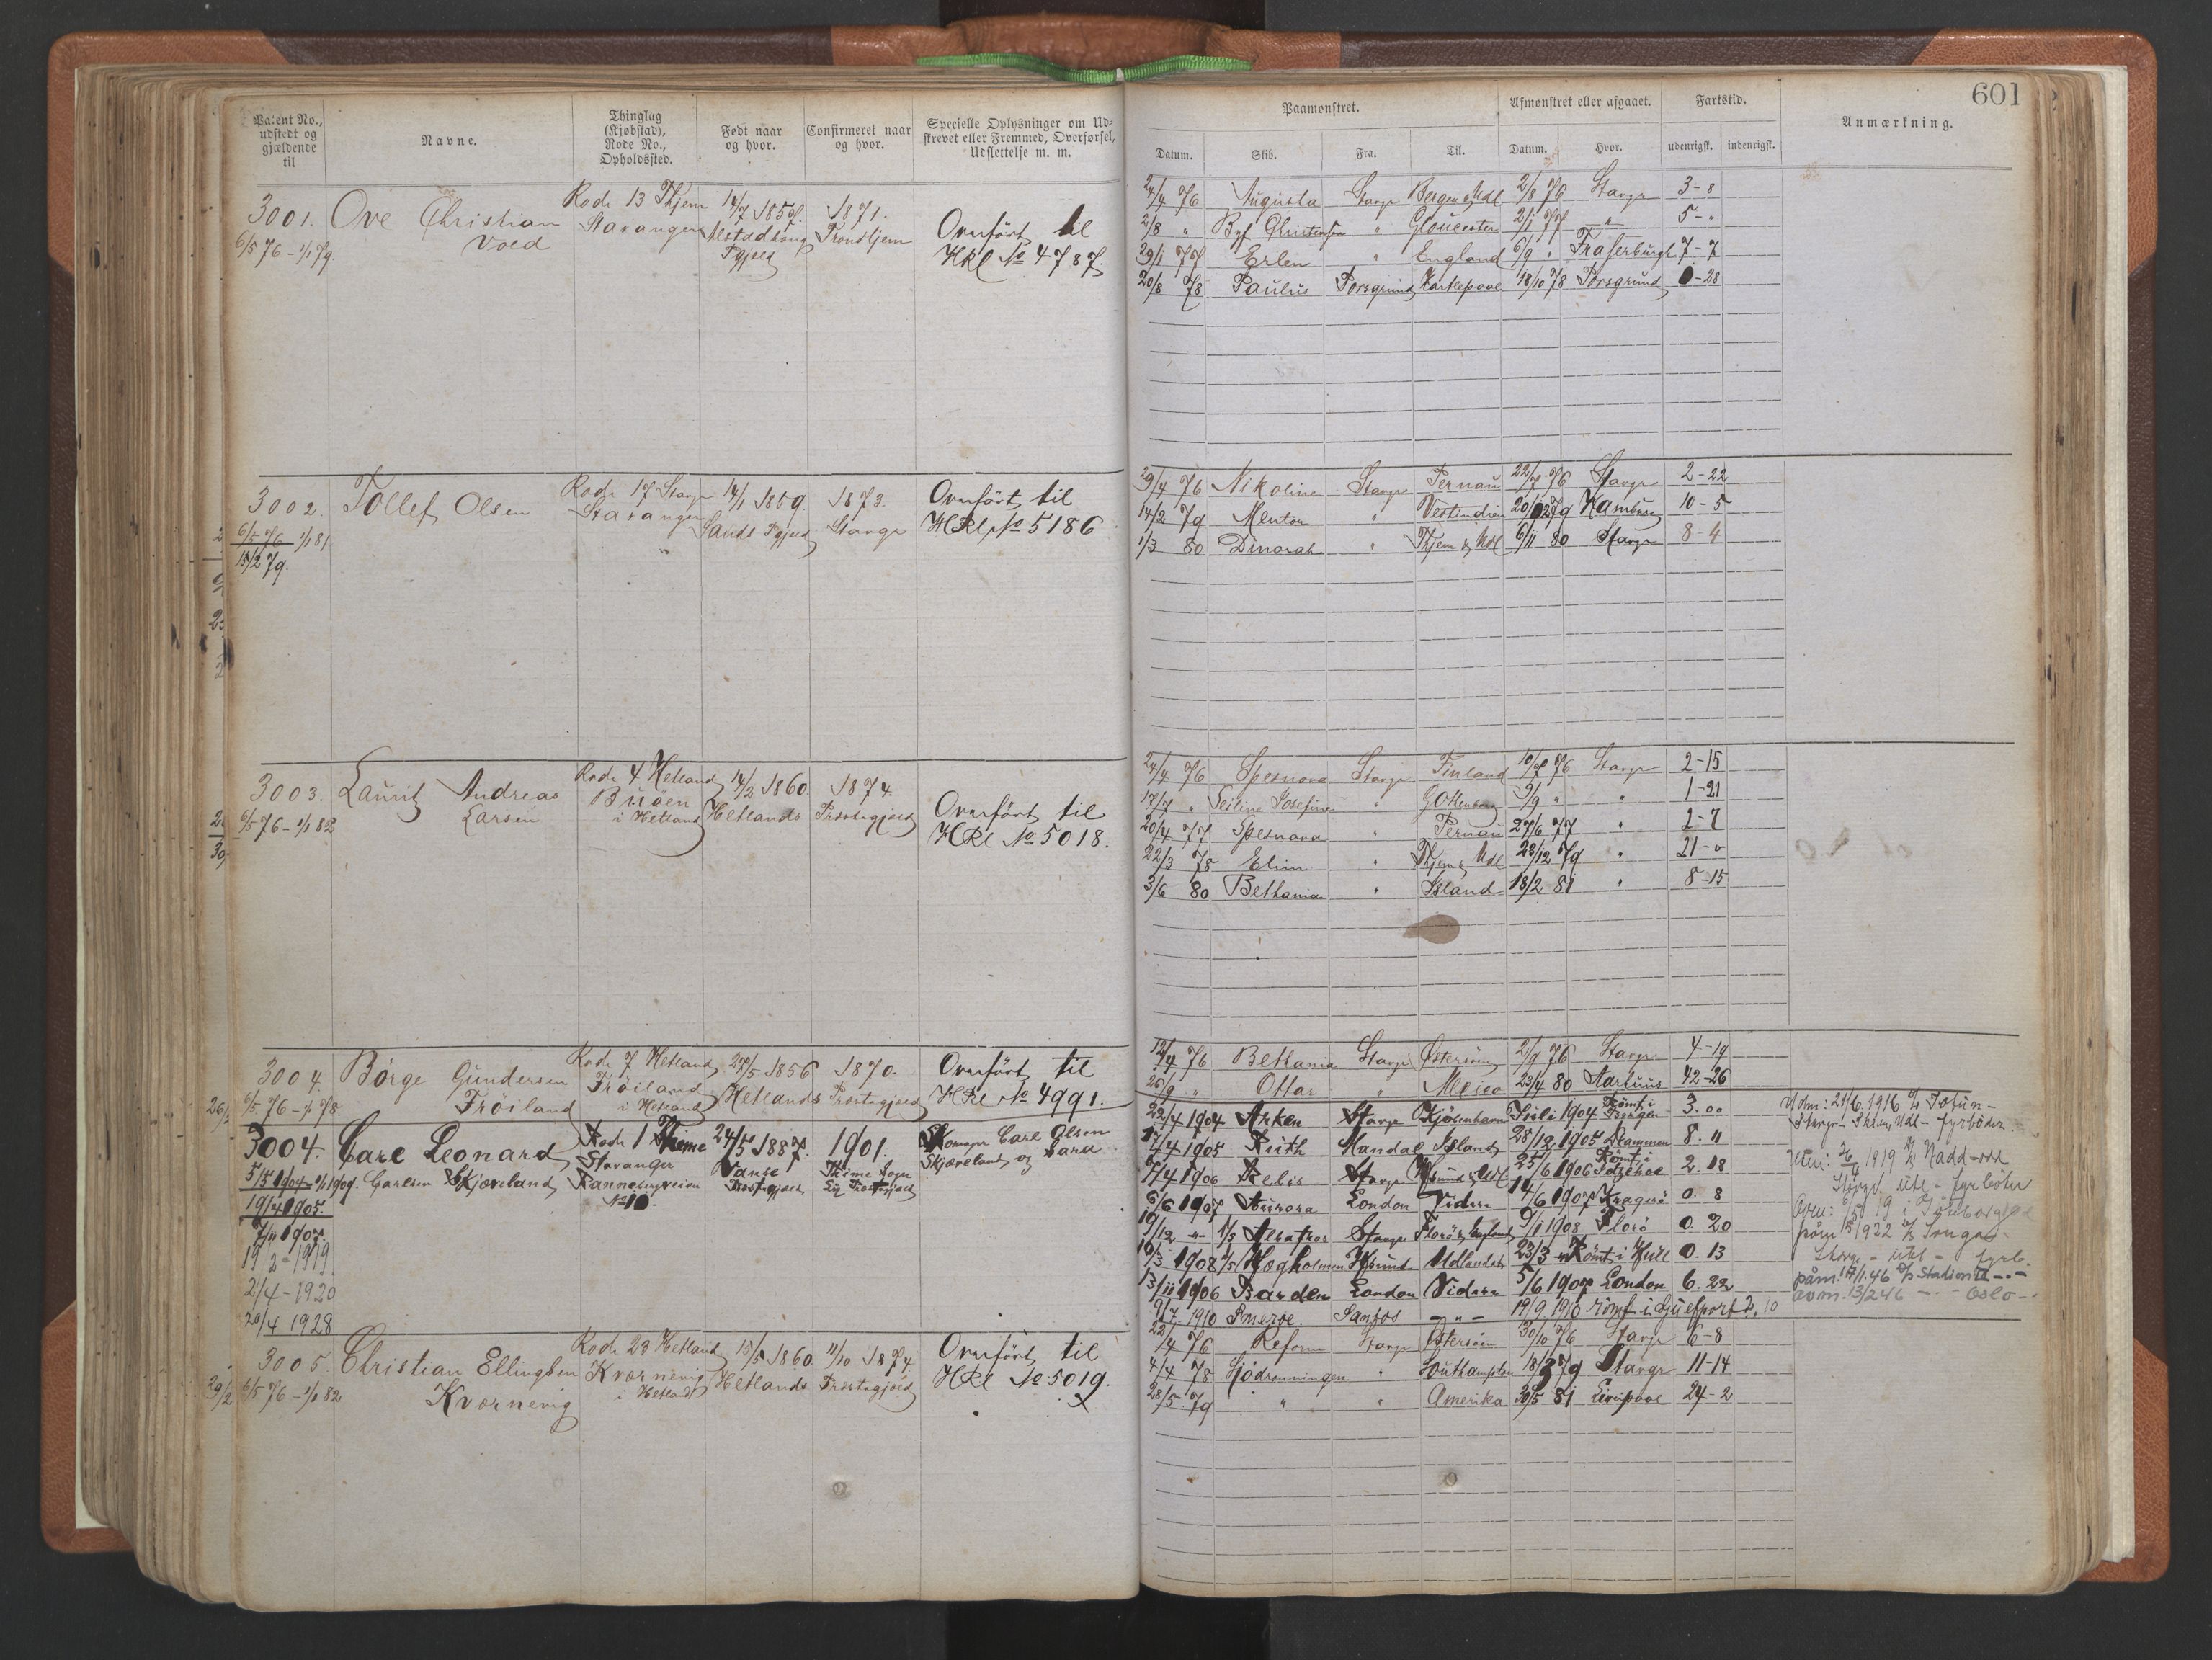 601
Patent No., udstedt og gjældende til
Navne.
Thinglag (Kjøbstad), Rode No., Opholdssted.
Født naar og hvor.
Confirmeret naar og hvor.
Specielle Oplysninger om Udskrevet eller Fremmed, Overførsel, Udslettelse m. m.
Paamønstret.
Afmønstret eller afgaaet.
Fartstid.
Anmærkning.
Datum.
Skib.
Fra.
Til.
Datum.
Hvor.
udenrigsk.
indenrigsk.
3001. Ove Christian Rode 13 Thjem 14/7 1857. 1871. Overført til
6/5 76 - 1/1 79. Vold Stavanger Trondhjem HRl No 4787.
Pgjeld
24/4 76 Augusta Stavgr Bergen & Udl 2/8 76 Stavgr 3-8
2/8 " Christensen " Gloucester 2/1 77 " 5-"
29/1 77 Erlen " England 6/9 " Fraserburgh 7-7
20/8 78 Paulus Porsgrund Hartlepool 18/10 78 Porsgrund 0-28
3002. Tollef Olsen Rode 17 Stavgr 14/1 1859. 1873. Overført til
6/5 76 1/1 81 Stavanger Sands Pgjeld Stavgr HRl No 5186
15/2 79.
29/4 76 Nikoline Stavgr Pernau 22/7 76 Stavgr 2-22
14/2 79 Mentor " Vestindien 20/12 79 Hamburg 10-5
1/3 80 Dinorah " Thjem & Udl 6/11 80 Stavgr 8-4
3003. Lauritz Andreas Rode 4 Hetland 14/2 1860 1874. Overført til
6/5 76 - 1/1 82 Larsen Buøen i Hetland Hetlands Præstegjeld HRl No 5018.
24/4 76 Spesnova Stavgr Finland 10/7 76 Stavgr 2-15
17/7 " Josefine " Gottenborg /9 " " 1-21
20/4 77 Spesnova " Pernau 27/6 77 " 2-7
22/3 78 Elim " Thjem & Udl 23/12 79 " 21-0
3/6 80 Bethania " Island 18/2 81 " 8-15
3004. Børge Gundersen Rode 7 Hetland 27/5 1856 1870. Overført til
6/5 76 - 1/1 78. Frøiland Frøiland i Hetland Hetlands Præstegjeld HRl No 4991.
12/4 76 Bethania Stavgr Østersøen 2/9 76 Stavgr 4-19
26/9 " Ottar " Mexico 23/4 80 Aarhuus 42-26
3004. Carl Leonard Rode 1 24/5 1887. 1901. Skomager Carl Olsen
5/5 1904 - 1/1 1909. Carlsen Skjæveland Stavanger Vanse Thime Sogn Skjæveland og Sara
19/4 1905. Rannebergveien No 10. Præstegjeld Lye Præstegjeld
7/11 1907.
19/2 - 1919
2/4 - 1920
20/4 1928
22/4 1904 Anken Stavgr Kjøbenhavn Juli 1904 Rømt i Bergen 3.00
17/4 1905 Ruth Mandal Island 28/12 1905 Drammen 8. 11
7/4 1906 Relis Stavgr & Udl 25/6 1906 Rømt i Itzehoe 2.18
6/6 1907 Aurora London Videre 14/6 1907 Kragerø 0. 8
19/12 Albatros Stavgr Florø & England 9/1 1908 Florø 0. 20
10/3 1908 Hægholmen Udlandet 23/3 Rømt i Hull 0. 13
13/11 1906 Barden London Videre 5/6 1907 London 6. 22
9/7 1910 Santos - " - 19/9 1910 rømt i Gulfport 2, 10
Udm: 21/6 1916 Jotun -
Stavgr - Udl - fyrbøder
1919 Nadd-odd
Stavgr. utl - fyrbøter
19 i Gøteborg
påm 1922 Songa -
Stavg - utl - fyrb.
påm. 17/1.46 Stadion II -.-
avm. 13/2 46 -.- Oslo -.
3005. Christian Ellingsen Rode 23 Hetland 15/5 1860 11/10 1874 Overført til
6/5 76 - 1/1 82 Kvernevig Kvernevig i Hetland Hetlands Præstegjeld HRl No 5019.
22/4 76 Reform Stavgr Østersøen 30/10 76 Stavgr 6-8
4/4 78 Sjødronningen " Southampton 18/3 79 Stavgr 11-14
28/5 79 " " Amerika 30/5 81 Liverpool 24-2